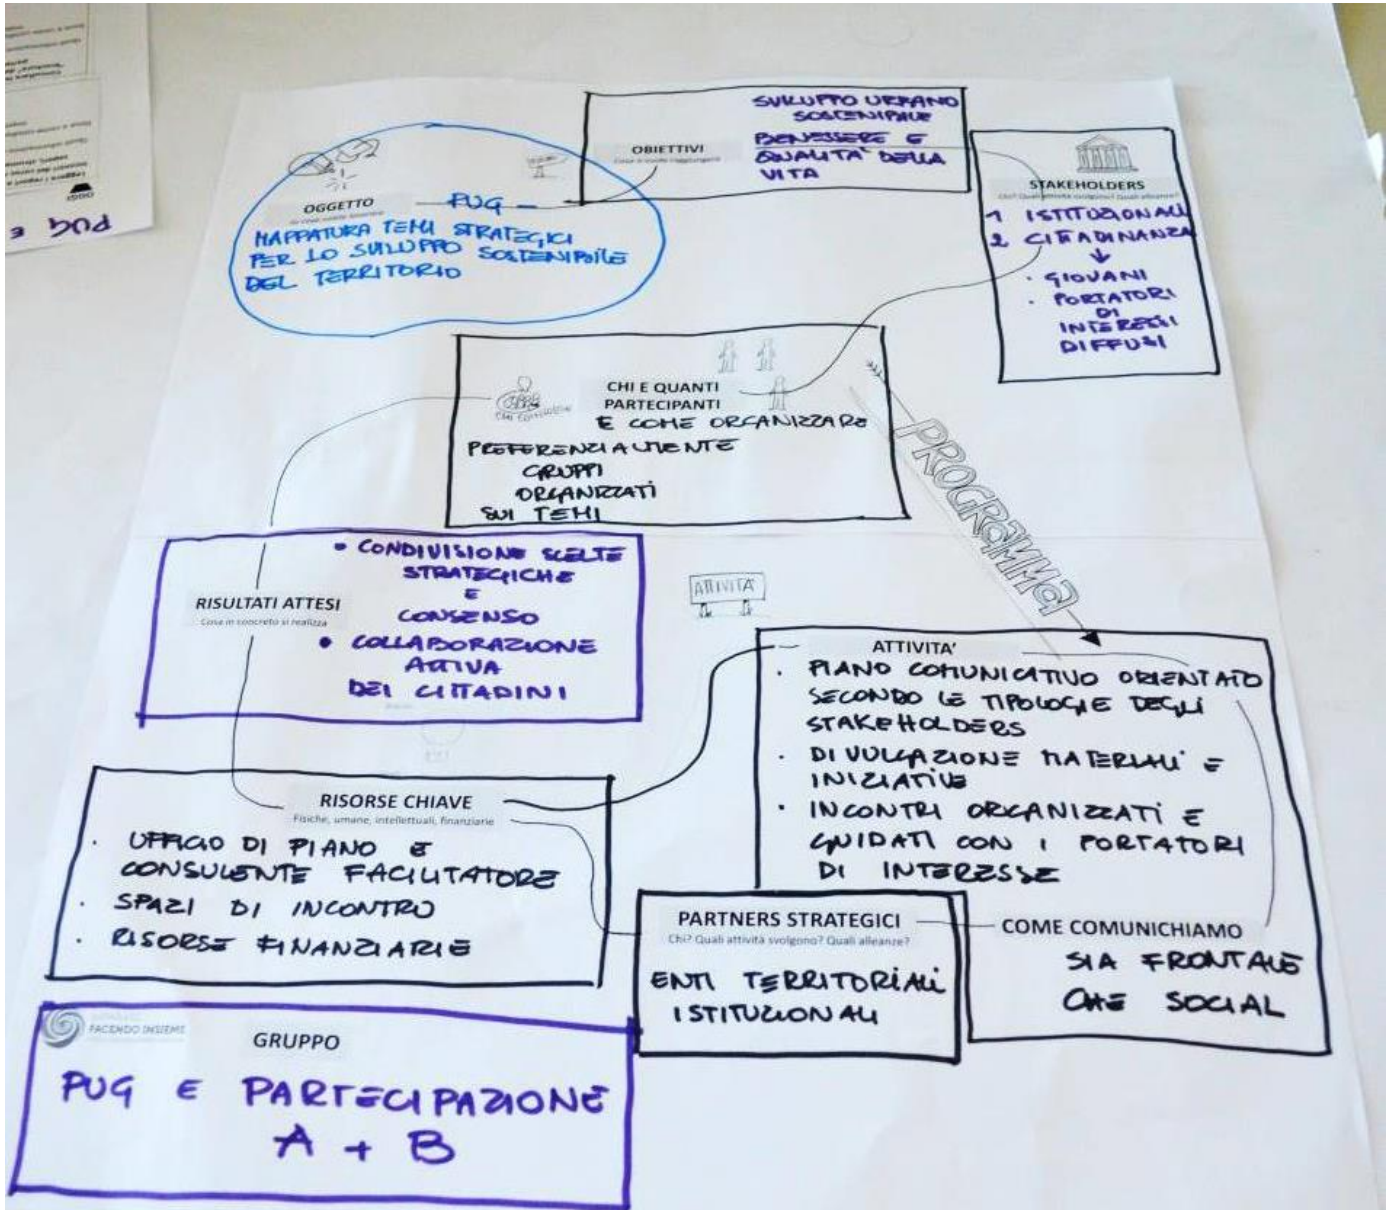 OBIETTIVI
SVILUPPO URBANO
SOSTENIBILE
BENESSERE E
QUALITA' DELLA
VITA
OGGETTO
PUG -
MAPPATURA TEMI STRATEGICI
PER LO SVILUPPO SOSTENIBILE
DEL TERRITORIO
STAKEHOLDERS
Chi? Quali attività svolgono? Quali alleanze?
1 ISTITUZIONALI
2 CITTADINANZA
↓
· GIOVANI
· PORTATORI
DI
INTERESSI
DIFFUSI
CHI E QUANTI
PARTECIPANTI
E COME ORGANIZZARE
PREFERENZIALMENTE
GRUPPI
ORGANIZZATI
SUI TEMI
PROGRAMMA
RISULTATI ATTESI
Cosa in concreto si realizza
• CONDIVISIONE SCELTE
STRATEGICHE
E
CONSENSO
• COLLABORAZIONE
ATTIVA
DEI CITTADINI
ATTIVITA'
ATTIVITA'
· PIANO COMUNICATIVO ORIENTATO
SECONDO LE TIPOLOGIE DEGLI
STAKEHOLDERS
· DIVULGAZIONE MATERIALI E
INIZIATIVE
· INCONTRI ORGANIZZATI E
GUIDATI CON I PORTATORI
DI INTERESSE
RISORSE CHIAVE
Fisiche, umane, intellettuali, finanziarie
· UFFICIO DI PIANO E
CONSULENTE FACILITATORE
· SPAZI DI INCONTRO
· RISORSE FINANZIARIE
PARTNERS STRATEGICI
Chi? Quali attività svolgono? Quali alleanze?
ENTI TERRITORIALI
ISTITUZIONALI
COME COMUNICHIAMO
SIA FRONTALE
CHE SOCIAL
FACENDO INSIEME
GRUPPO
PUG E PARTECIPAZIONE
A + B
PUG E
OGGI